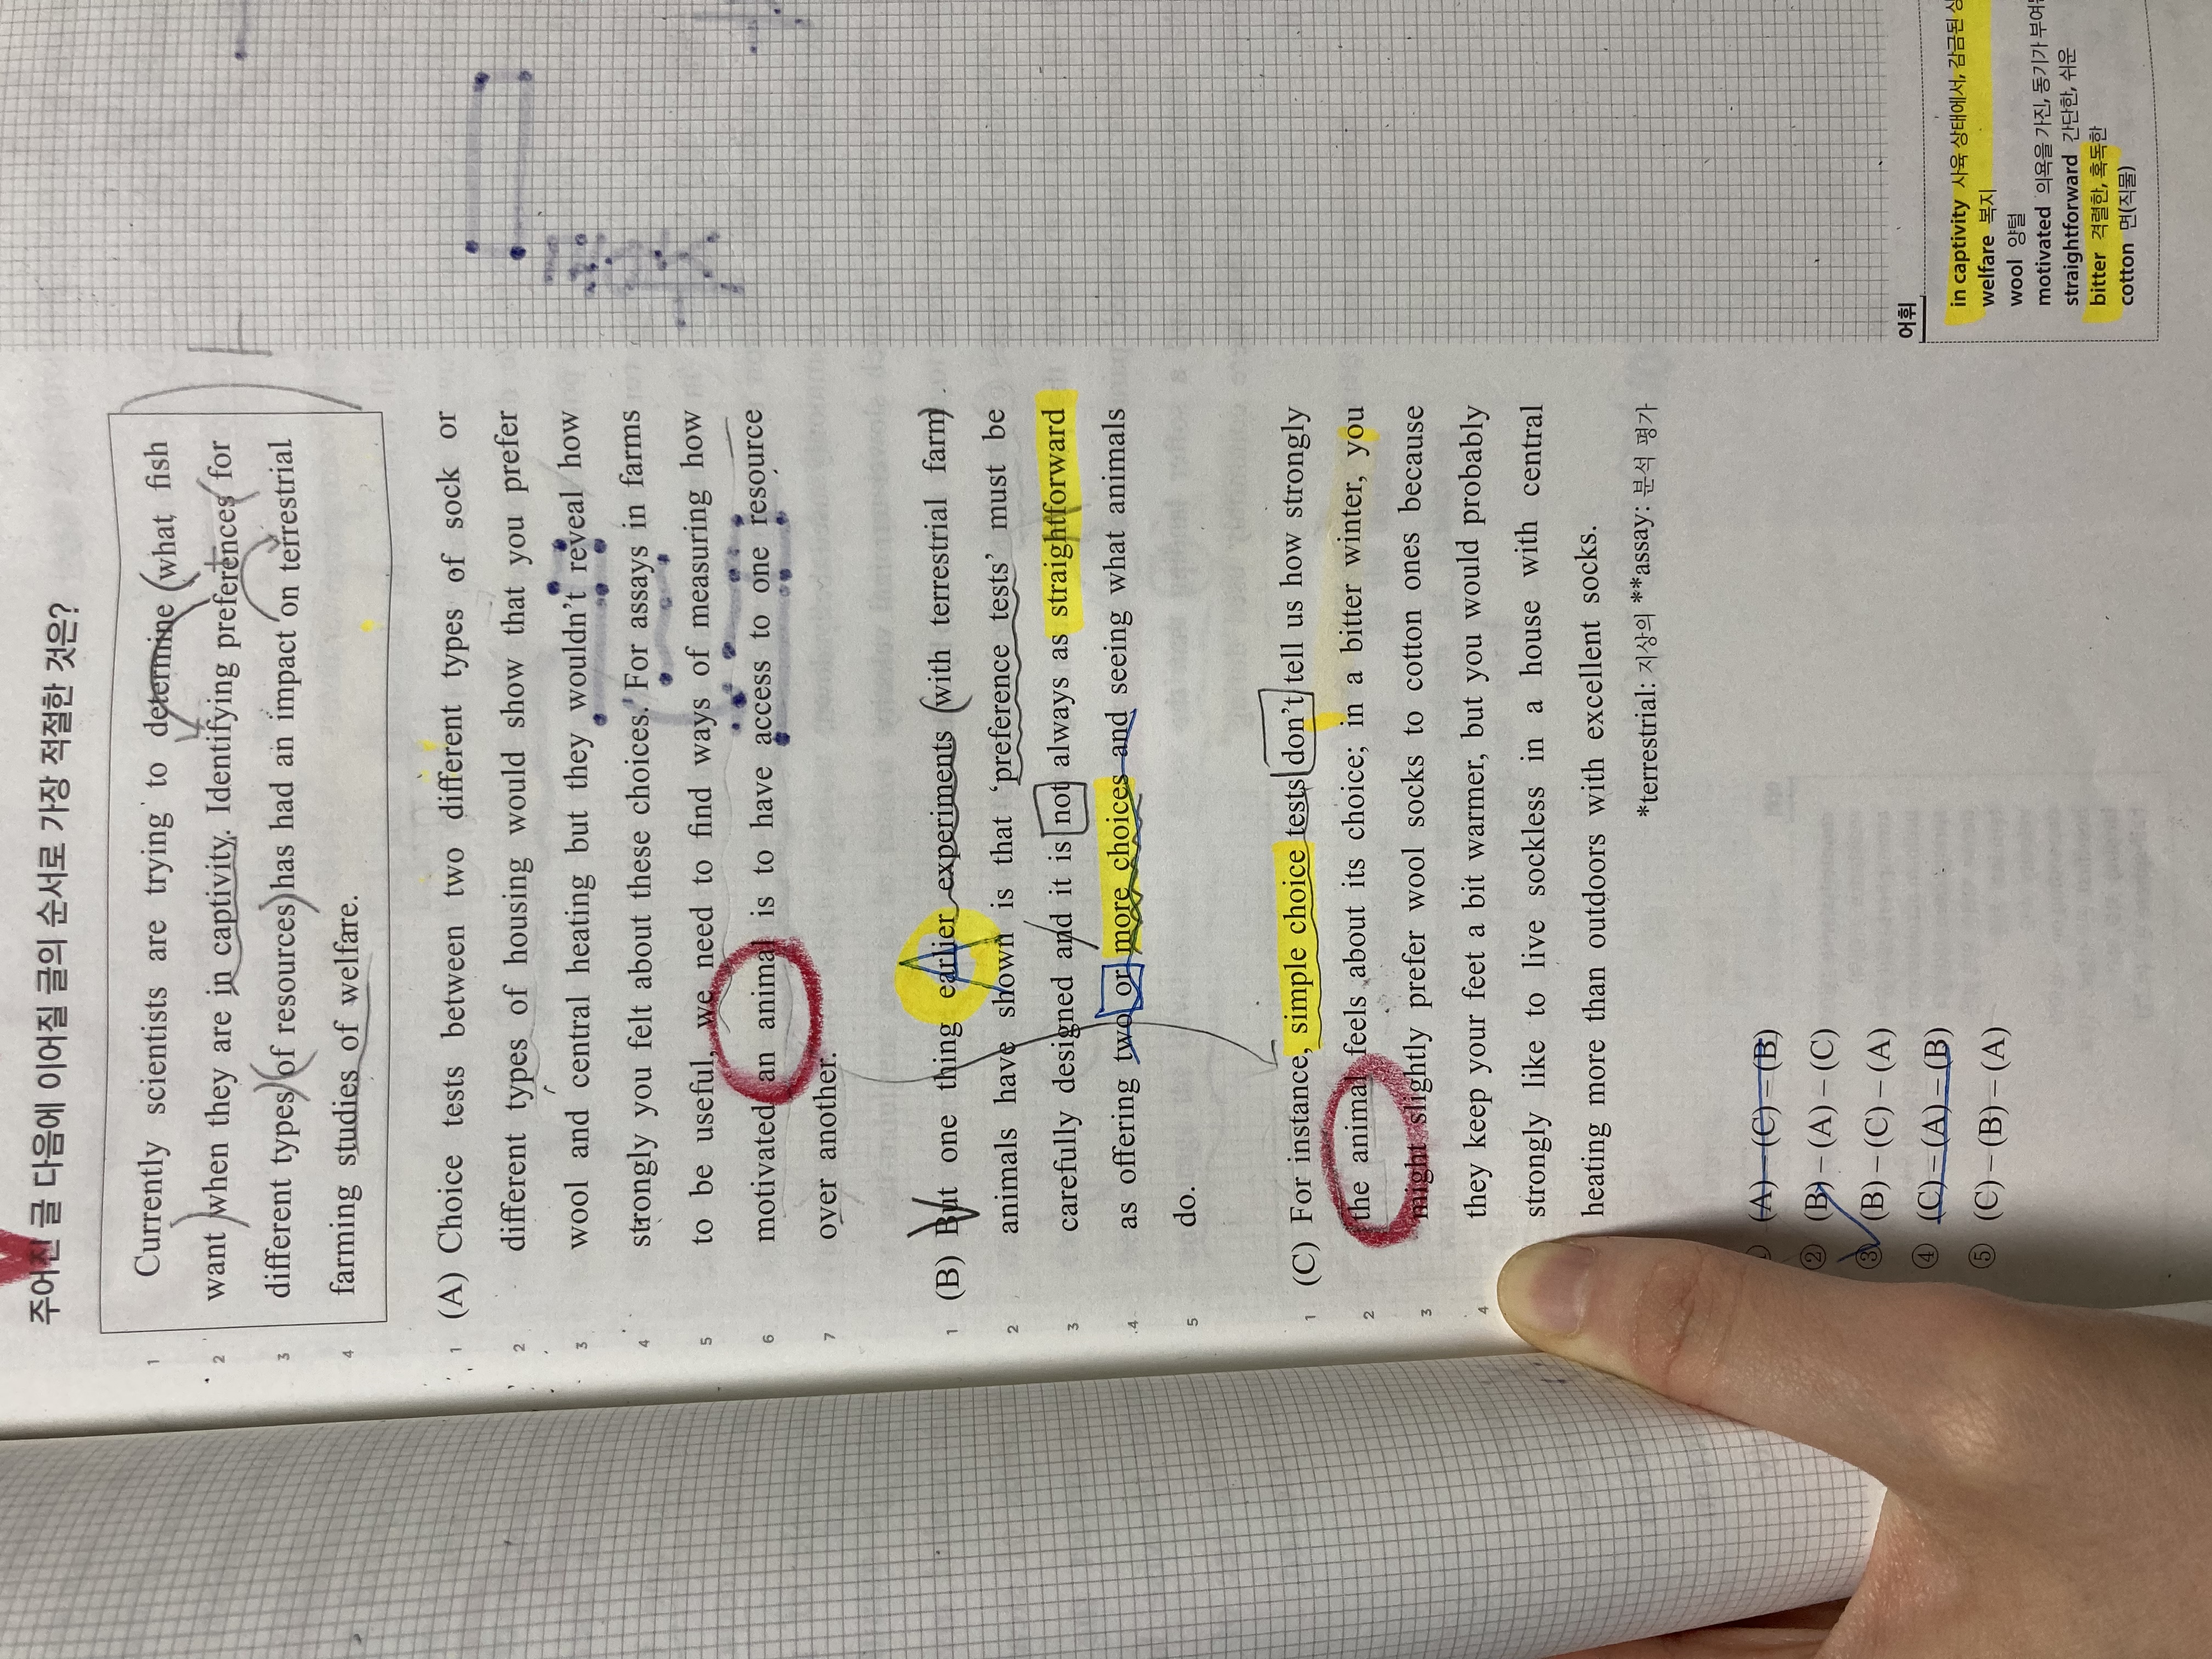 주어진 글 다음에 이어질 글의 순서로 가장 적절한 것은?
1 Currently scientists are trying to determine what fish
2 want when they are in captivity. Identifying preferences for
3 different types of resources has had an impact on terrestrial
4 farming studies of welfare.
1 (A) Choice tests between two different types of sock or
2 different types of housing would show that you prefer
3 wool and central heating but they wouldn't reveal how
4 strongly you felt about these choices. For assays in farms
5 to be useful, we need to find ways of measuring how
6 motivated an animal is to have access to one resource
7 over another.
1 (B) But one thing earlier experiments (with terrestrial farm)
2 animals have shown is that 'preference tests' must be
3 carefully designed and it is not always as straightforward
4 as offering two or more choices and seeing what animals
5 do.
1 (C) For instance, simple choice tests don't tell us how strongly
2 the animal feels about its choice; in a bitter winter, you
3 might slightly prefer wool socks to cotton ones because
4 they keep your feet a bit warmer, but you would probably
strongly like to live sockless in a house with central
heating more than outdoors with excellent socks.
*terrestrial: 지상의 **assay: 분석 평가
(A)-(C)-(B)
② (B)-(A)-(C)
③ (B)-(C)-(A)
④ (C)-(A)-(B)
⑤ (C)-(B)-(A)
어휘
in captivity 사육 상태에서, 감금된
welfare 복지
wool 양털
motivated 의욕을 가진, 동기가
straightforward 간단한, 쉬운
bitter 격렬한, 혹독한
cotton 면(직물)